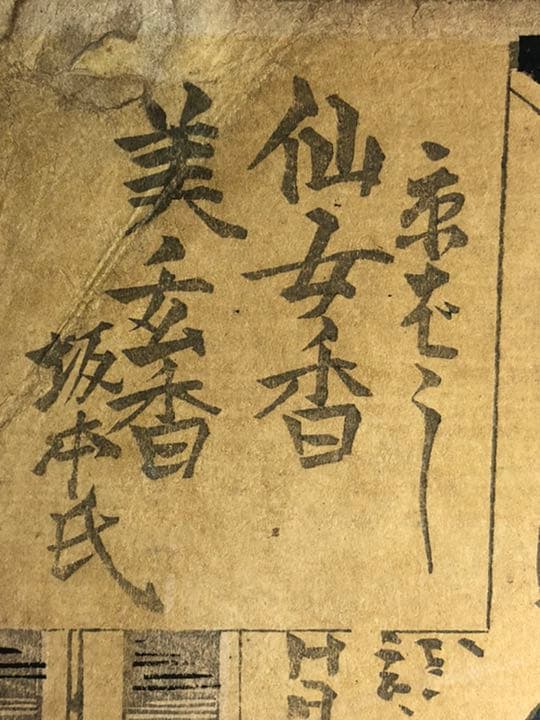 京ばし
仙女香
美玄香
坂本氏